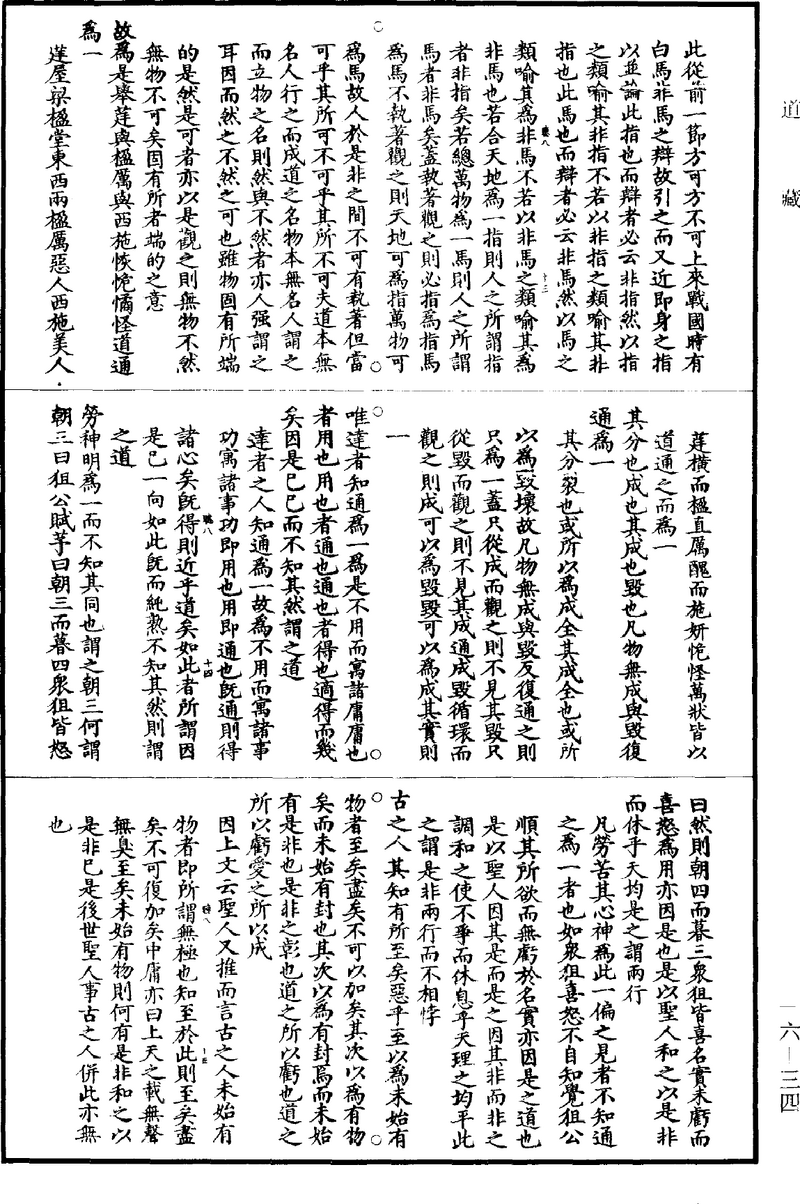 道藏
此從前一節方可方不可上來戰國時有
白馬非馬之辯故引之而又近即身之指
以並論此指也而辯者必云非指然以指
之類喻其非指不若以非指之類喻其非
指也此馬也而辯者必云非馬然以馬之
類喻其為非馬不若以非馬之類喻其為
非馬也若合天地為一指則人之所謂指
者非指矣若總萬物為一馬則人之所謂
馬者非馬矣蓋執著觀之則必指為指馬
為馬不執著觀之則天地可為指萬物可
為馬故人於是非之間不可有執著但當
可乎其所可不可乎其所不可夫道本無
名人行之而成道之名物本無名人謂之
而立物之名則然與不然者亦人强謂之
耳因而然之不然之可也雖物固有所端
的是然是可者亦以是觀之則無物不然
無物不可矣固有所者端的之意
故為是舉莛與楹厲與西施恢恑憰怪道通
為一
莛屋梁楹堂東西兩楹厲惡人西施美人
莛橫而楹直厲醜而施妍恑怪萬狀皆以
道通之而為一
其分也成也其成也毀也凡物無成與毀復
通為一
其分裂也或所以為成全其成全也或所
以為毀壞故凡物無成與毀反復通之則
只為一蓋只從成而觀之則不見其毀只
從毀而觀之則不見其成通成毀循環而
觀之則成可以為毀毀可以為成其實則
一
唯達者知通為一為是不用而寓諸庸庸也
者用也用也者通也通也者得也適得而幾
矣因是已已而不知其然謂之道
達者之人知通為一故為不用而寓諸事
功寓諸事功即用也用即通也旣通則得
諸心矣旣得則近乎道矣如此者所謂因
是已一向如此旣而純熟不知其然則謂
之道
勞神明為一而不知其同也謂之朝三何謂
朝三曰狙公賦芧曰朝三而暮四衆狙皆怒
曰然則朝四而暮三衆狙皆喜名實未虧而
喜怒為用亦因是也是以聖人和之以是非
而休乎天均是之謂兩行
凡勞苦其心神為此一偏之見者不知通
之為一者也如衆狙喜怒不自知覺狙公
順其所欲而無虧於名實亦因是之道也
是以聖人因其是而是之因其非而非之
調和之使不爭而休息乎天理之均平此
之謂是非兩行而不相悖
古之人其知有所至矣惡乎至以為未始有
物者至矣盡矣不可以加矣其次以為有物
矣而未始有封也其次以為有封焉而未始
有是非也是非之彰也道之所以虧也道之
所以虧愛之所以成
因上文云聖人又推而言古之人未始有
物者即所謂無極也知至於此則至矣盡
矣不可復加矣中庸亦曰上天之載無聲
無臭至矣未始有物則何有是非和之以
是非已是後世聖人事古之人併此亦無
也
一六—三四